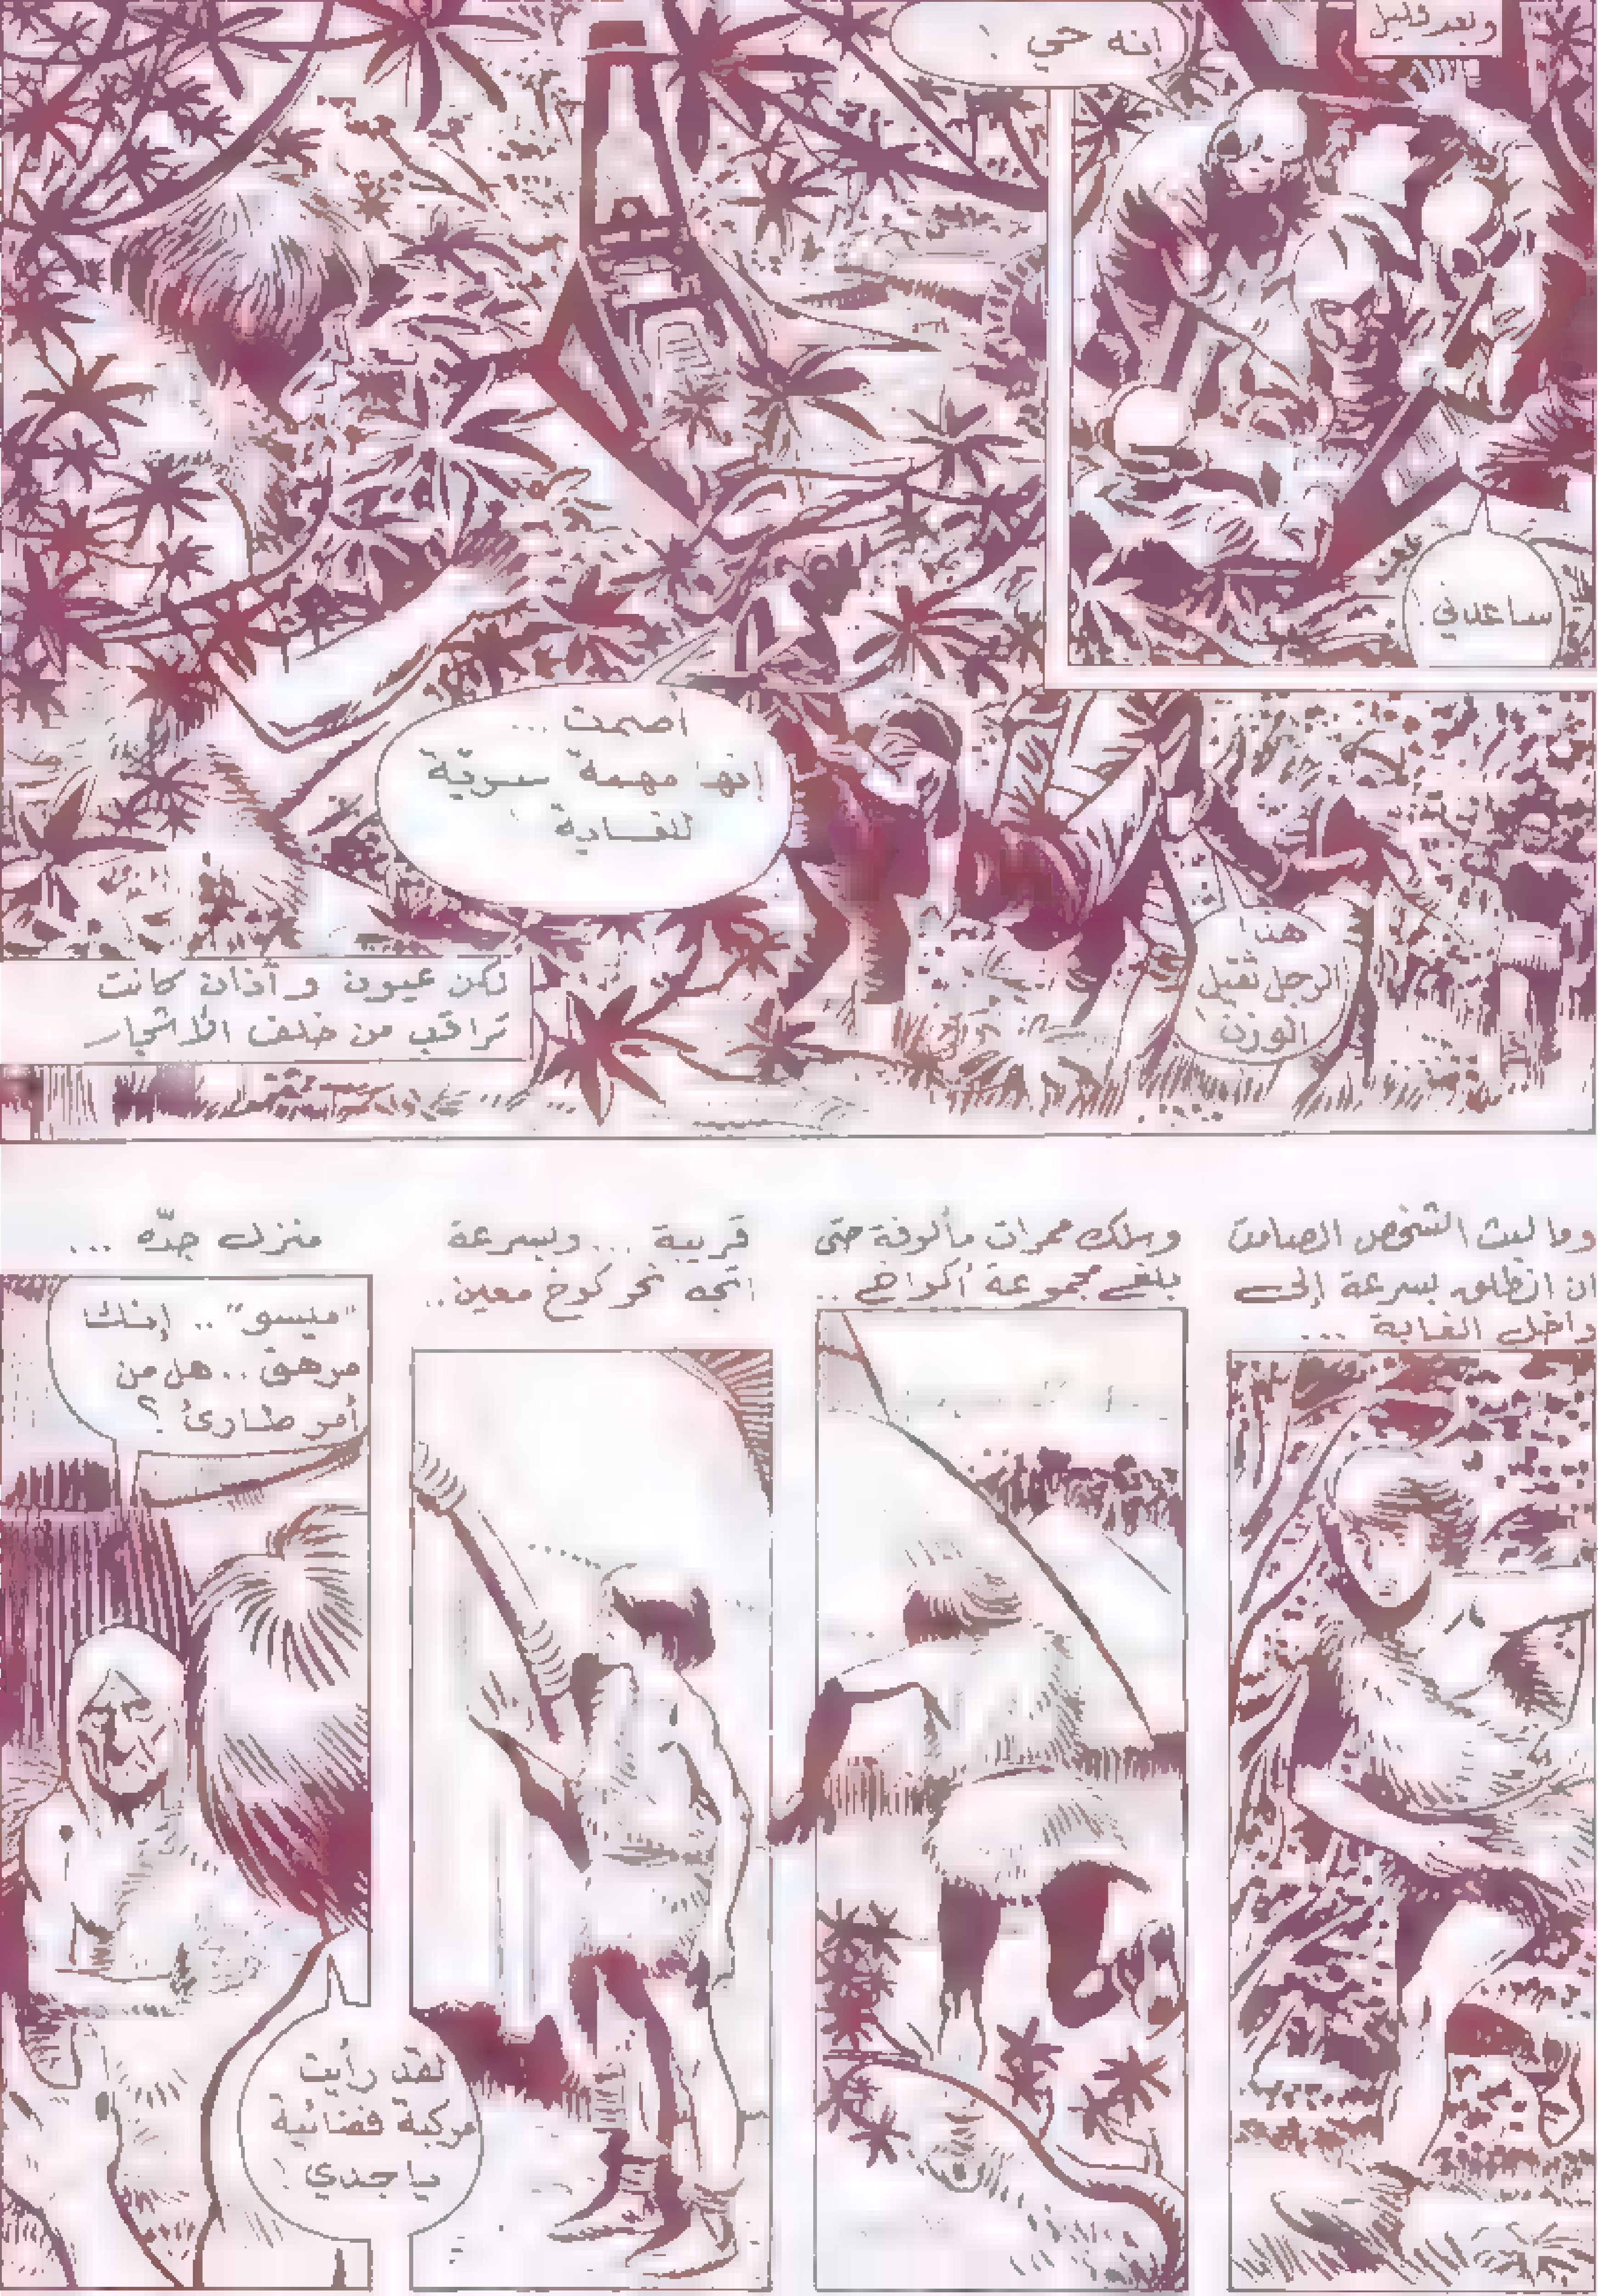 وبعد قليل
إنه حي !
ساعدني .
هذا
الرجل ثقيل
الوزن
أصمت ...
إنها مهمة سريّة
للغاية
لكن عيون و آذان كانت
تراقب من خلف الأشجار
وما لبث الشخص الصامت
ان انطلق بسرعة إلى
داخل الغابة ...
وسلك ممرات مألوفة حتى
بلغ مجموعة أكواخ ..
قريبة ... وبسرعة
اتجه نحو كوخ معين ..
منزل جدّه ...
"ميسو" .. إنك
مرهق .. هل من
أمر طارئ ؟
لقد رأيت
مركبة فضائية
يا جدي !